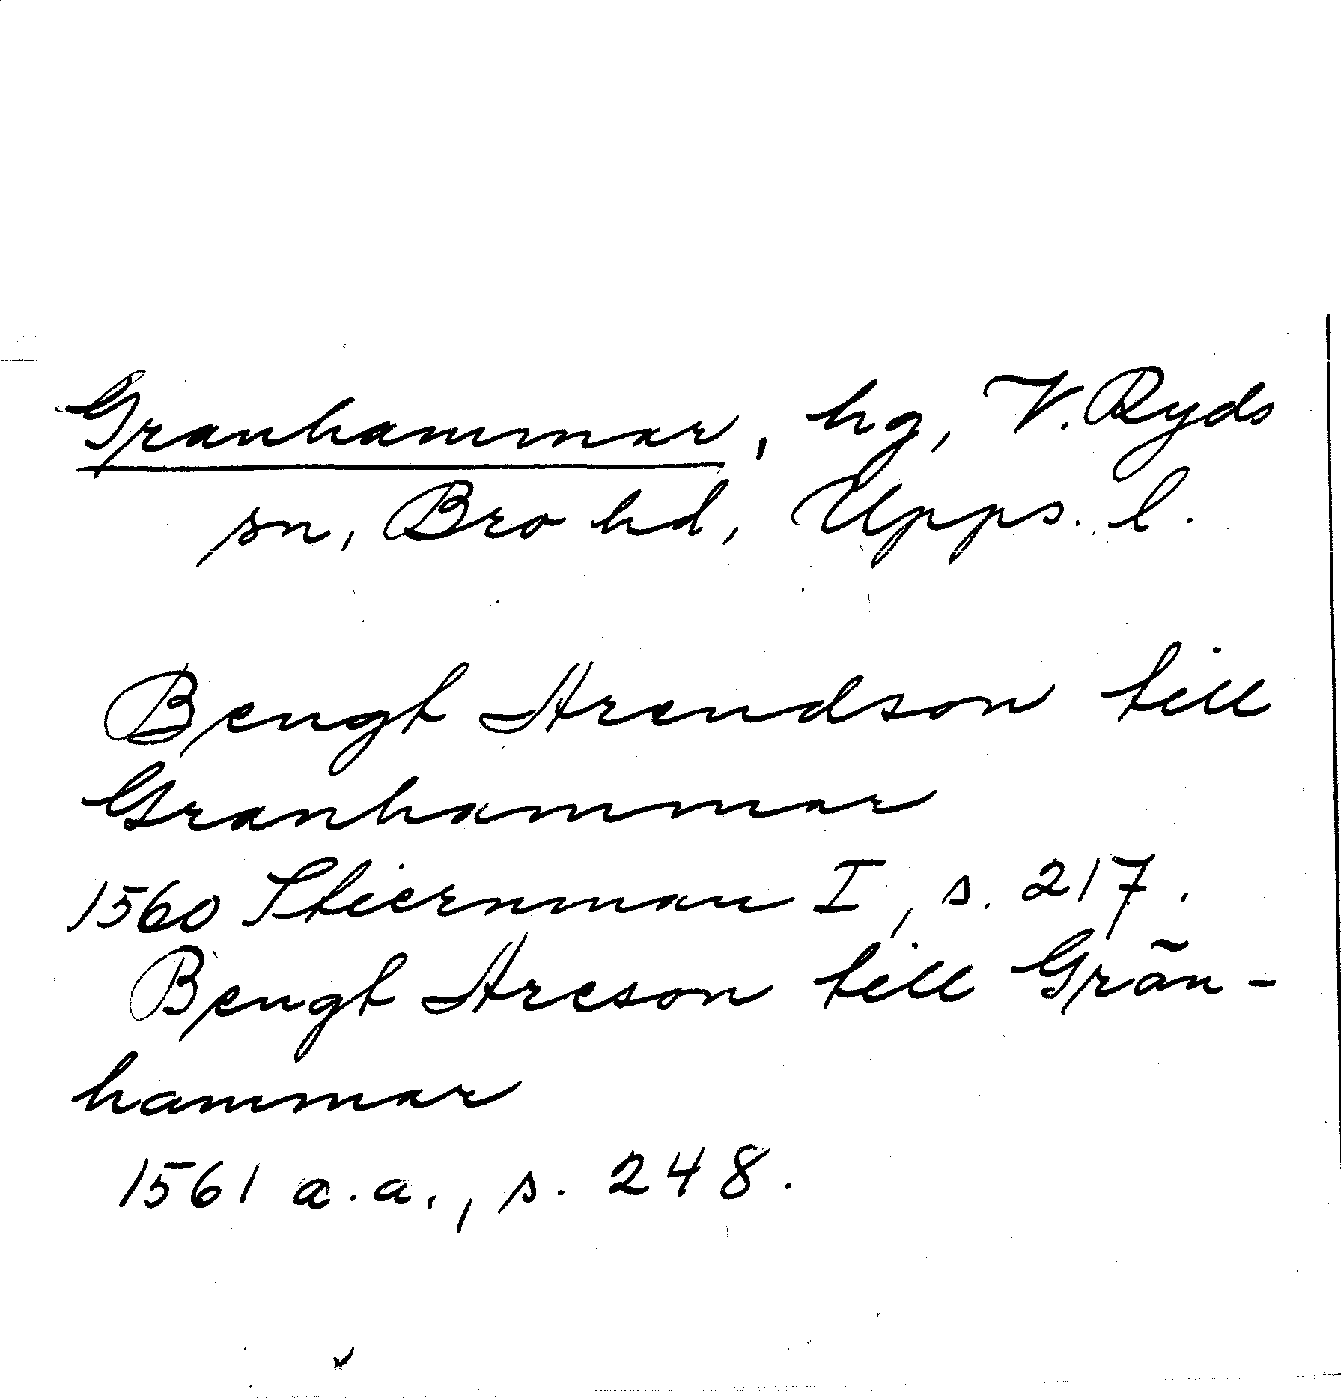 Granhammar, hg, V. Ryds
sn, Bro hd, Upps. l.
Bengt Arendson till
Granhammar
1560 Stiernman I, s. 217.
Bengt Areson till Grãn-
hammar
1561 a.a., s. 248.